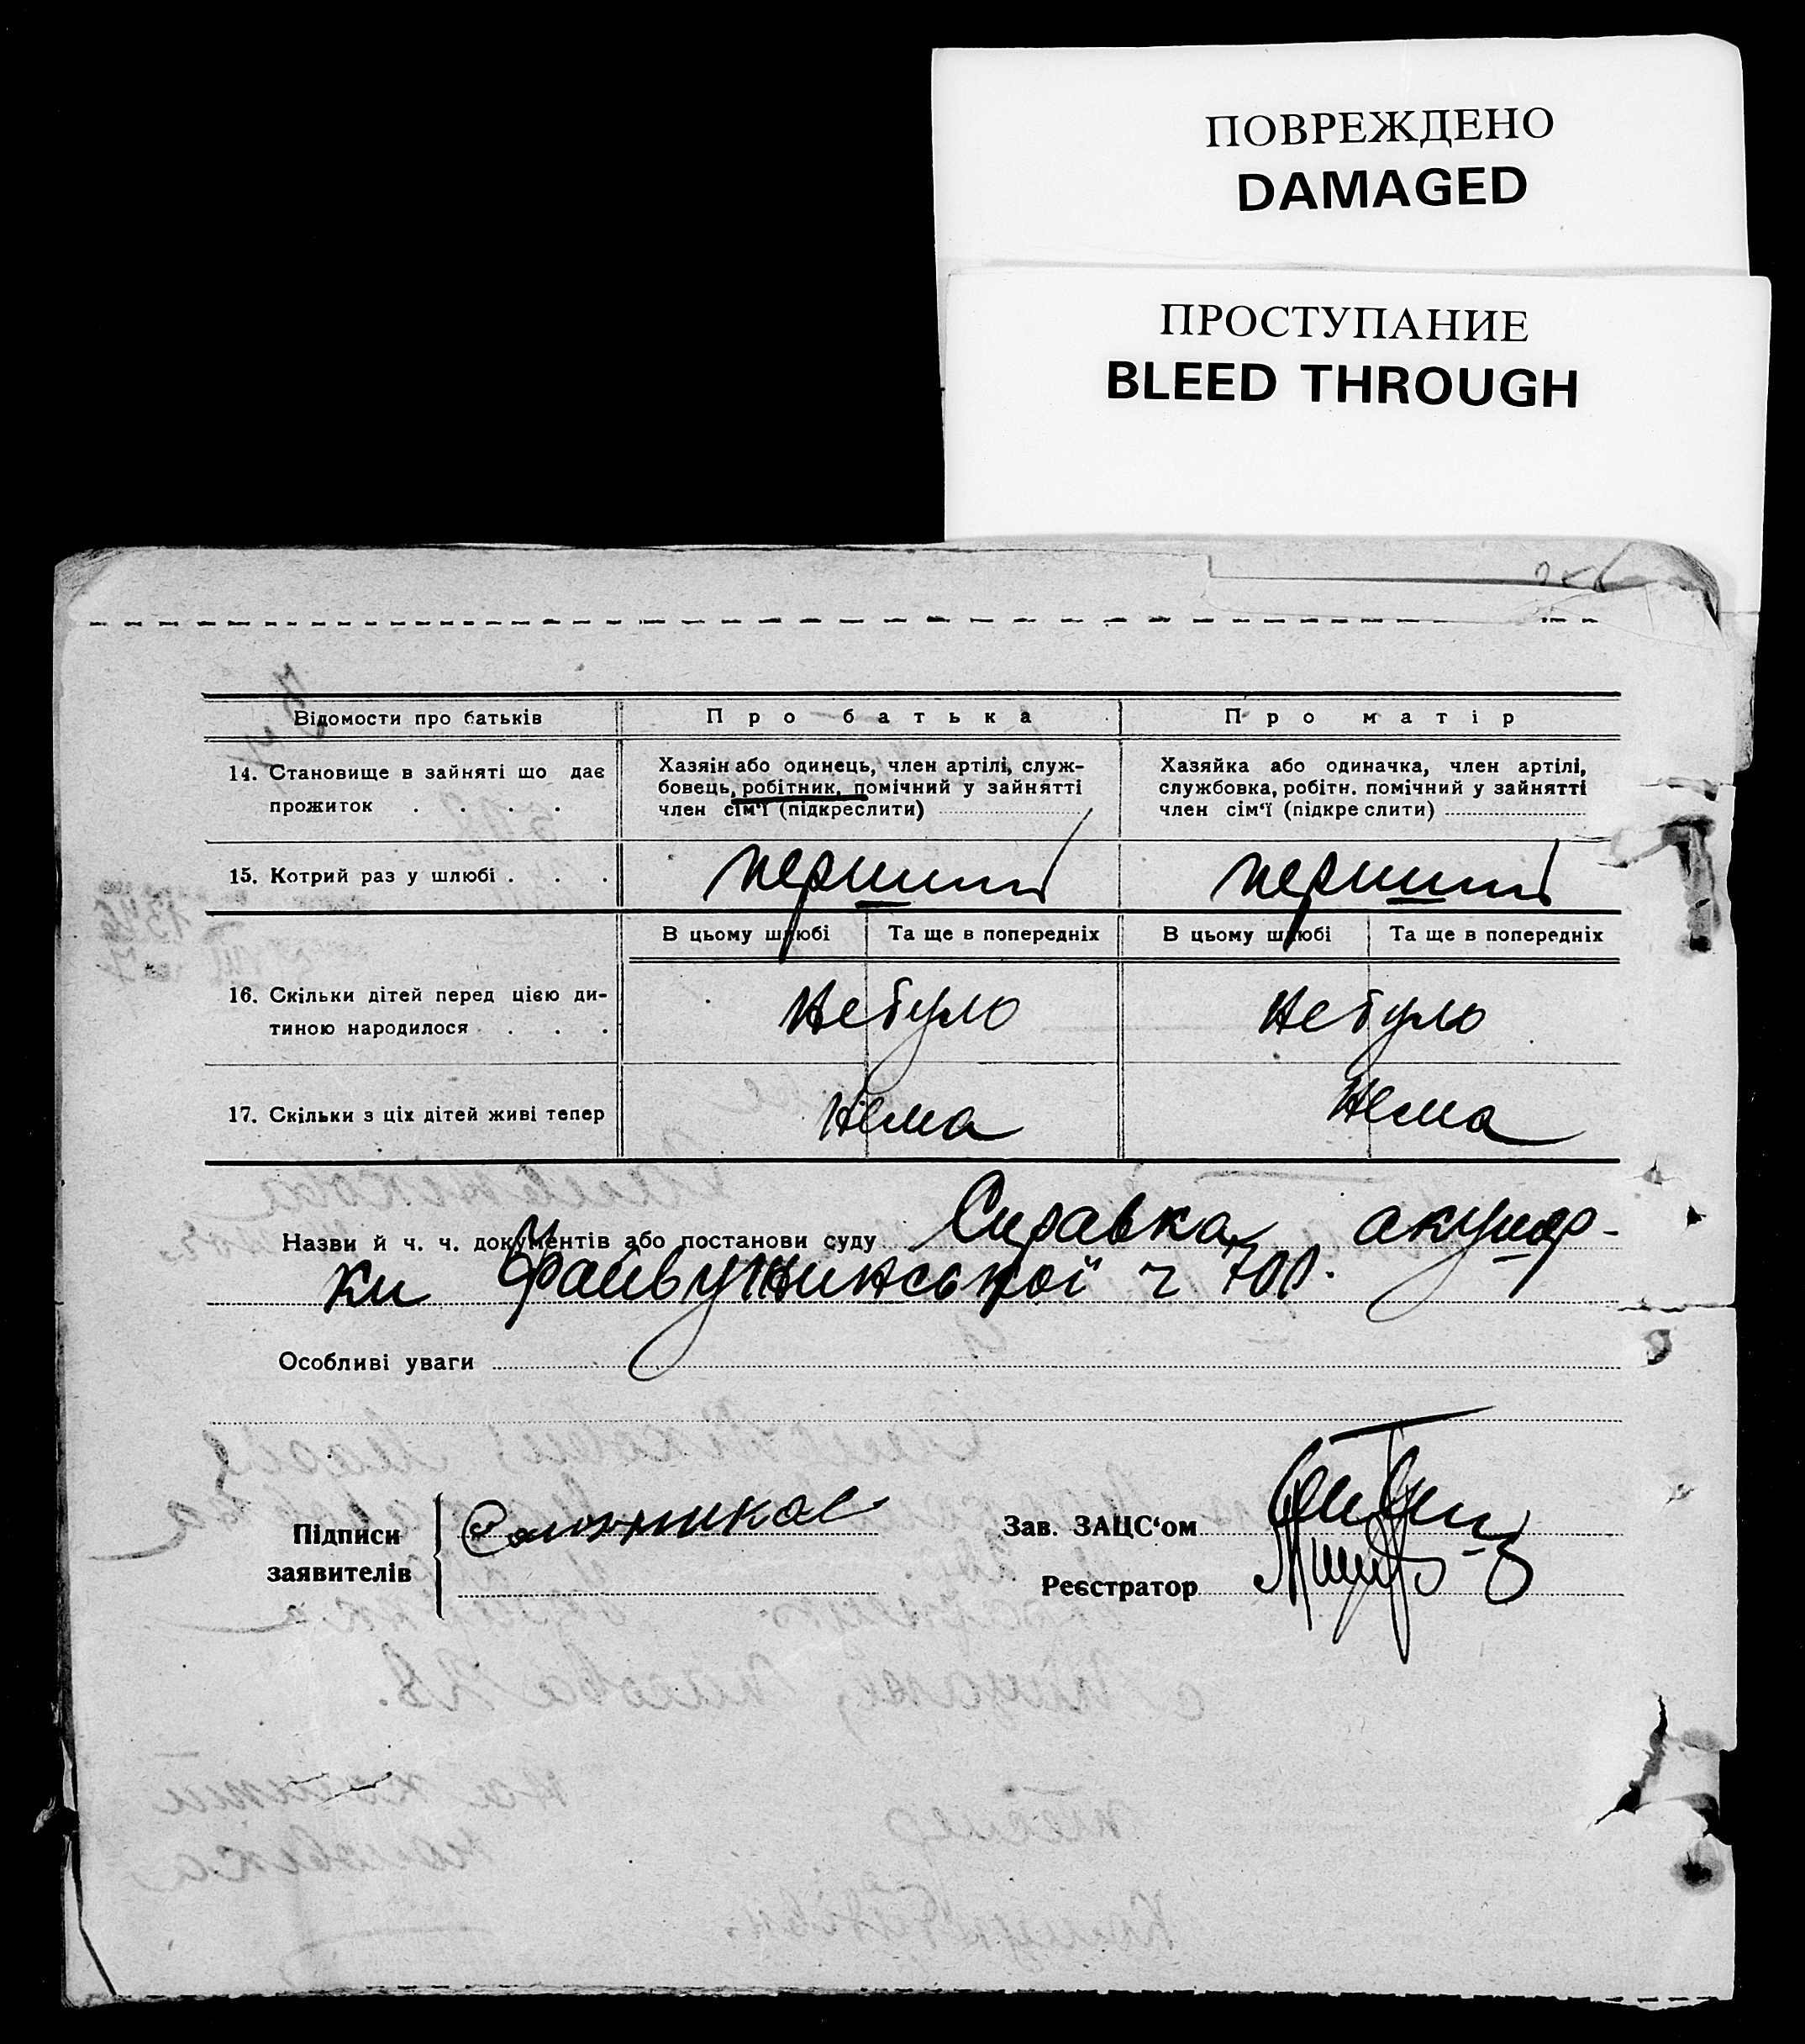 ПОВРЕЖДЕНО
DAMAGED
ПРОСТУПАНИЕ
BLEED THROUGH
Відомости про батьків Про батька Про матір
14. Становище в зайняті що дає прожиток . . . .
Хазяін або одинець, член артілі, служ-
бовець, робітник, помічний у зайнятті
член сім'ї (підкреслити)
Хазяйка або одиначка, член артілі,
службовка, робітн. помічний у зайнятті
член сім'ї (підкреслити)
15. Котрий раз у шлюбі . . . перший перший
В цьому шлюбі Та ще в попередніх В цьому шлюбі Та ще в попередніх
16. Скільки дітей перед цією ди-
тиною народилося . . . Небуло Небуло
17. Скільки з ціх дітей живі тепер Нема Нема
Назви й ч. ч. документів або постанови суду Справка акушер-
ки ч 700.
Особливі уваги
Підписи
заявителів
Зав. ЗАЦС'ом
Реєстратор